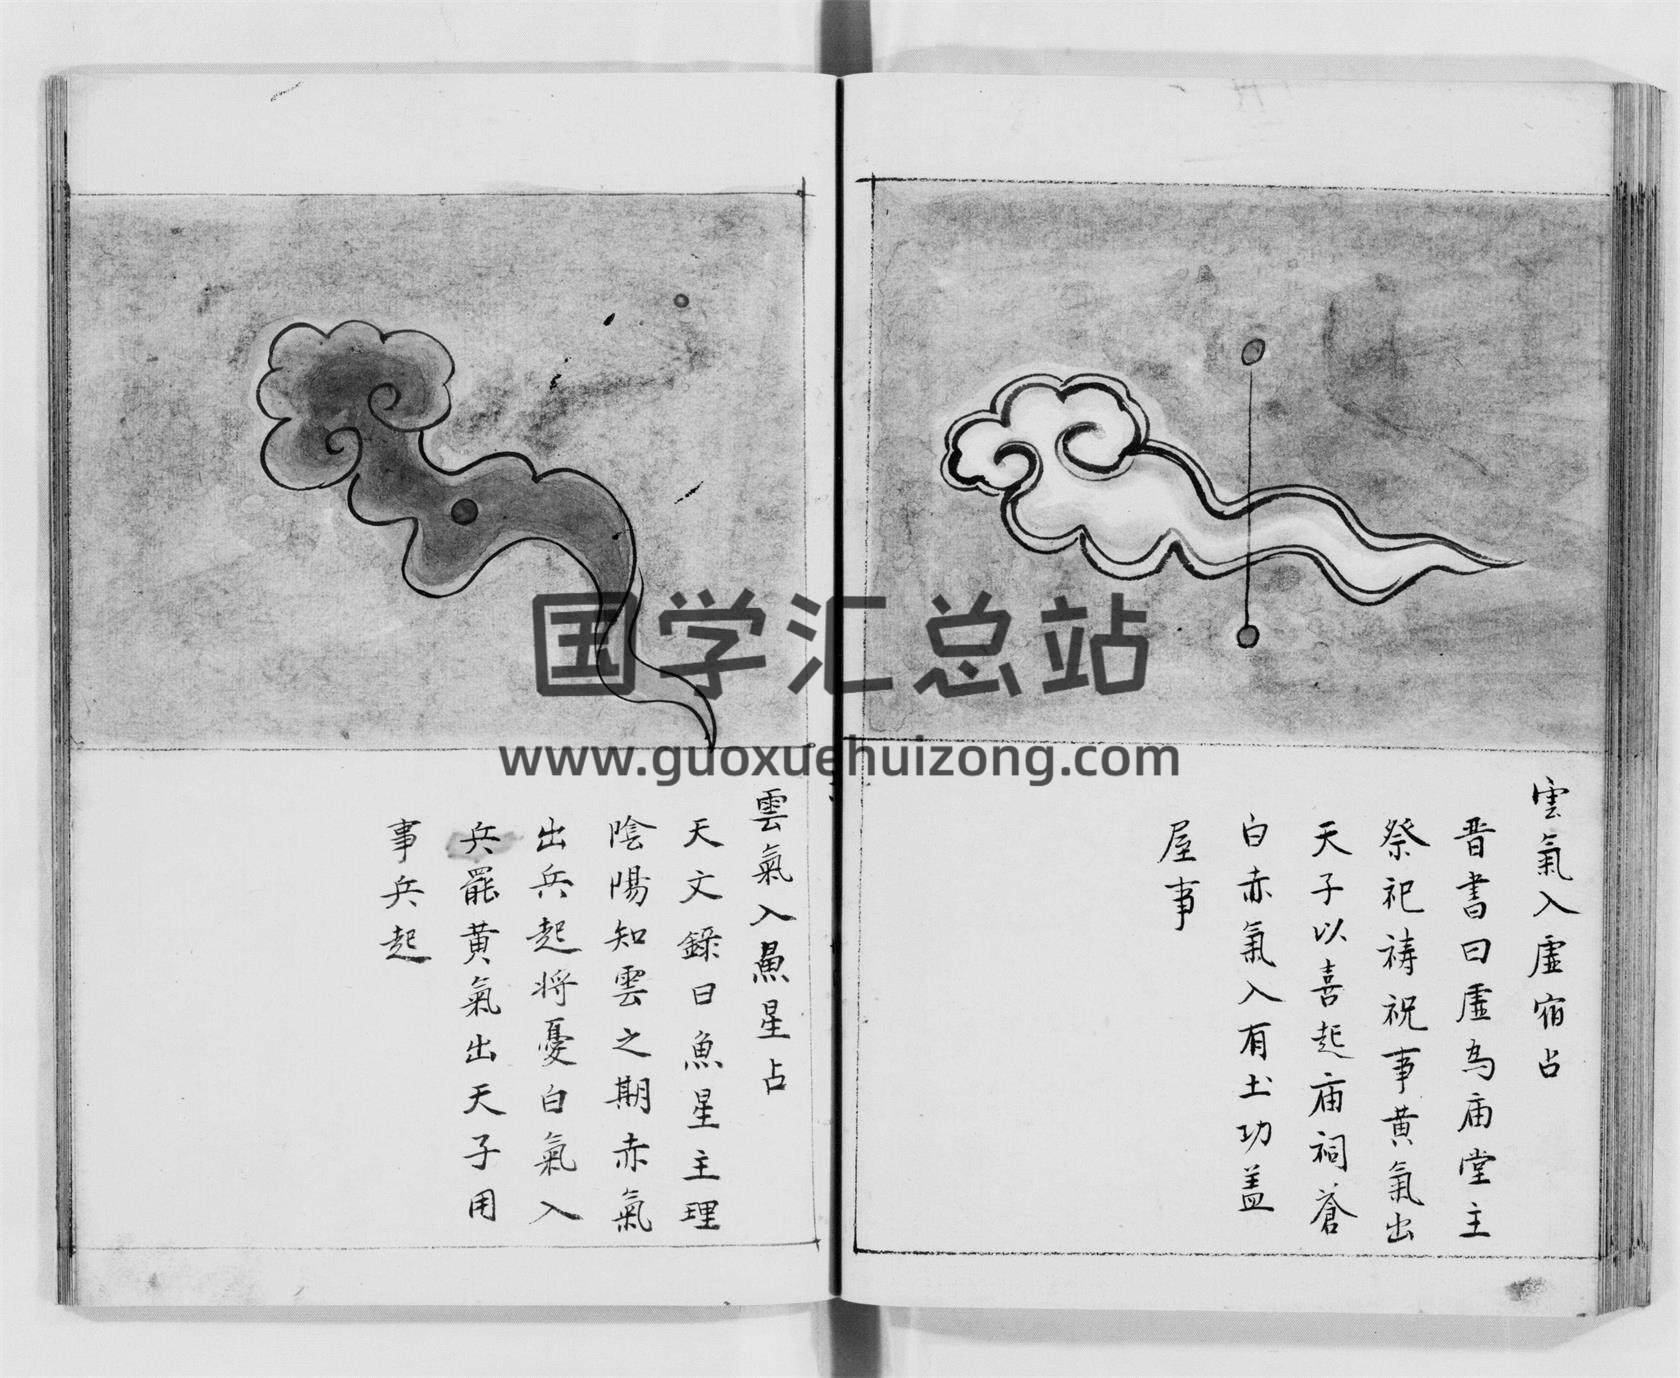 雲氣入虛宿占
晋書曰虛為庙堂主
祭祀祷祝事黄氣出
天子以喜起庙祠蒼
白赤氣入有土功盖
屋事
雲氣入魚星占
天文錄曰魚星主理
陰陽知雲之期赤氣
出兵起将憂白氣入
兵罷黄氣出天子用
事兵起
国学汇总站
www.guoxuehuizong.com